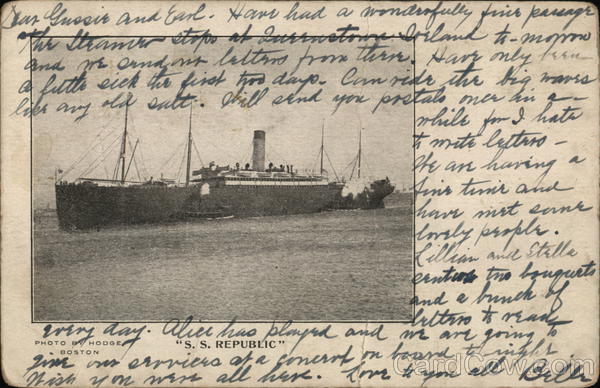 Dear Gussie and Earl. Have had a wonderfully fine passage
The Steamer stops at Queenstown Ireland to-morrow
and we send our letters from there. Have only been
a little sick the first two days. Can ride the big waves
like any old salt. Will send you postals once in a-
while for I hate
to write letters-
We are having a
fine time and
have met some
lovely people.
Lillian and Stella
sent us two bouquets
and a bunch of
letters to read
every day. Alice has played and we are going to
give our services at a concert on board to-night
Wish you were all here. Love to you all
PHOTO BY HODGE,
BOSTON
"S. S. REPUBLIC"
CardCow.com